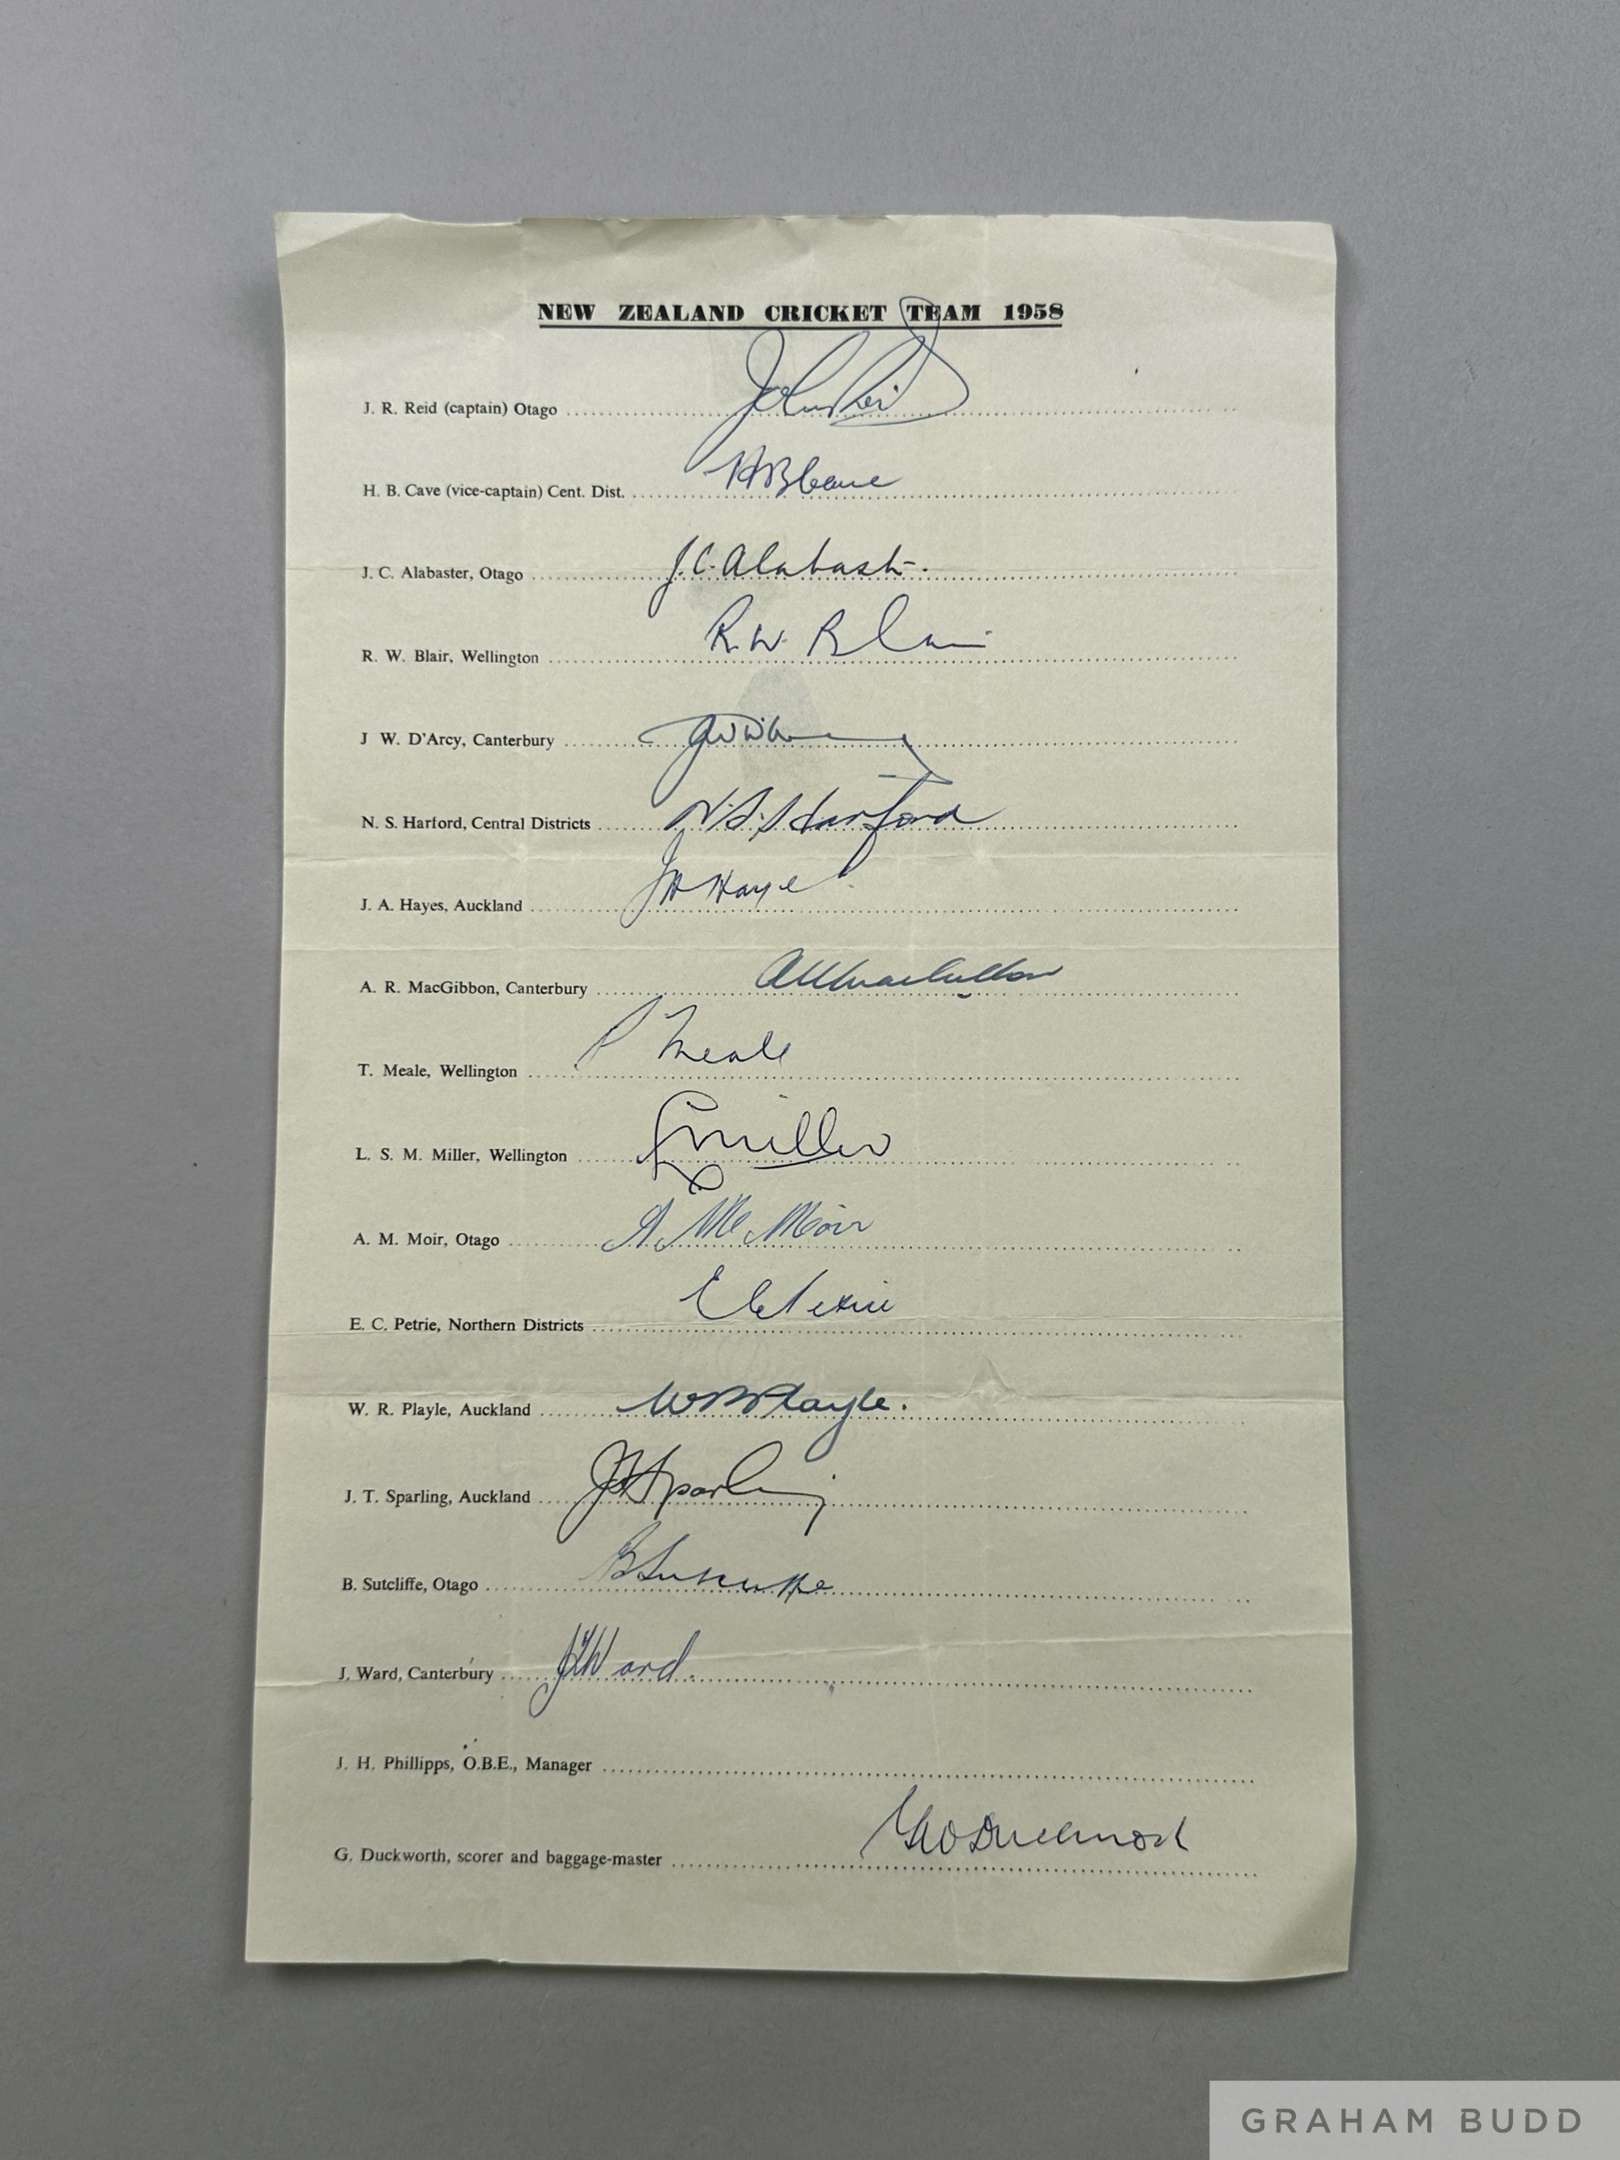 NEW ZEALAND CRICKET TEAM 1958
J. R. Reid (captain) Otago John Reid
H. B. Cave (vice-captain) Cent. Dist. H B Cave
J. C. Alabaster, Otago J. C. Alabaster.
R. W. Blair, Wellington R. W. Blair
J W. D'Arcy, Canterbury
N. S. Harford, Central Districts N. S. Harford
J. A. Hayes, Auckland J A Hayes
A. R. MacGibbon, Canterbury A R MacGibbon
T. Meale, Wellington T Meale
L. S. M. Miller, Wellington L S Miller
A. M. Moir, Otago A. M. Moir
E. C. Petrie, Northern Districts E C Petrie
W. R. Playle, Auckland W R Playle.
J. T. Sparling, Auckland J T Sparling
B. Sutcliffe, Otago B Sutcliffe
J. Ward, Canterbury J T Ward.
J. H. Phillipps, O.B.E., Manager
G. Duckworth, scorer and baggage-master Geo Duckworth
GRAHAM BUDD